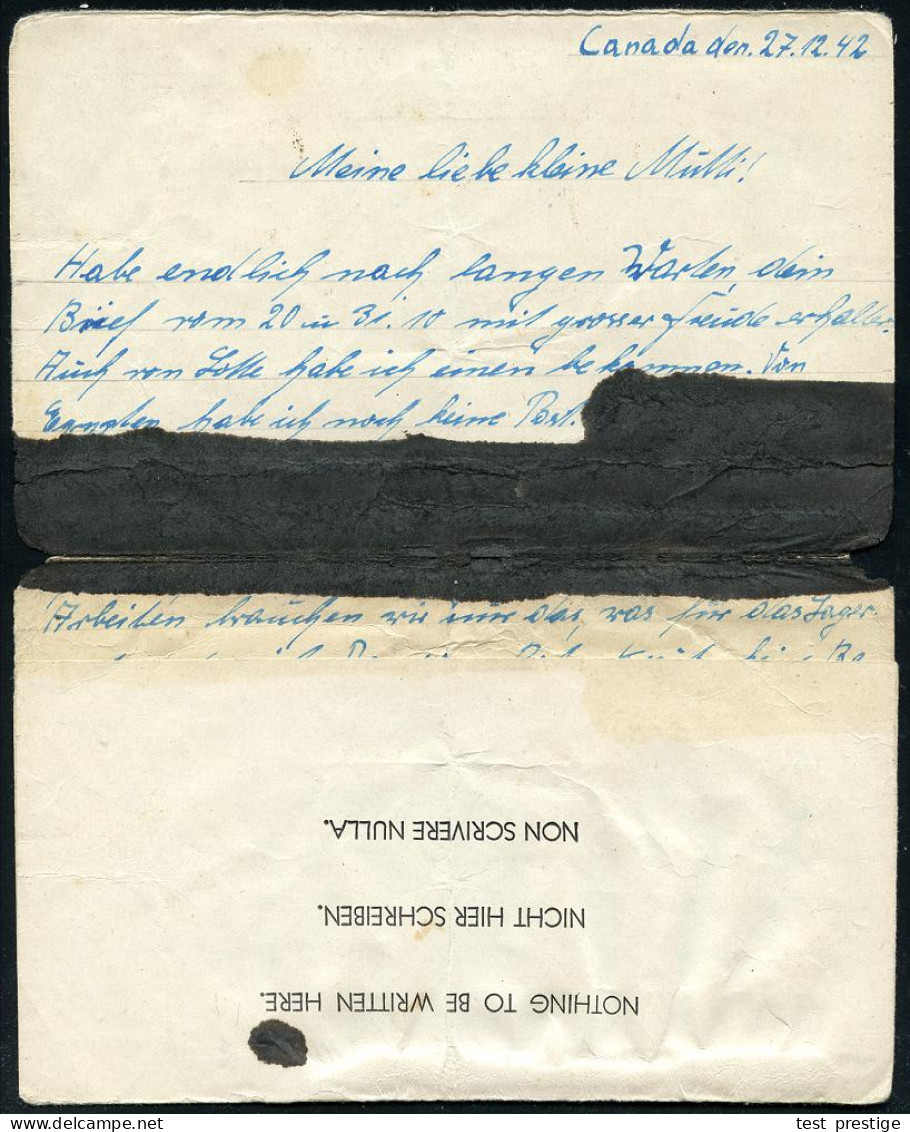 Canada den. 27.12.42
Meine liebe kleine Mutti!
Habe endlich nach langen Warten dein
Brief vom 20 u 31.10 mit grosser Freude erhalten.
Auch von Lotte habe ich einen bekommen. Von
habe ich noch keine Post.
Arbeiten brauchen wir nur das, was für das Lager
NON SCRIVERE NULLA.
NICHT HIER SCHREIBEN.
NOTHING TO BE WRITTEN HERE.
test prestige